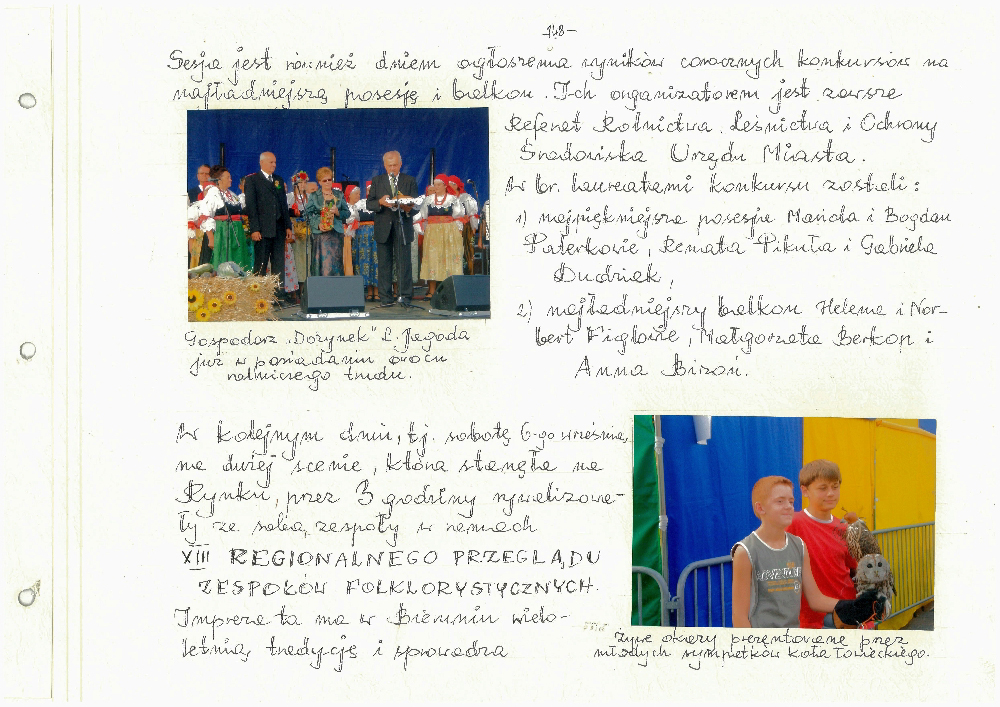 -148-
Sesja jest również dniem ogłoszenia wyników corocznych konkursów na
najładniejszą posesję i balkon. Ich organizatorem jest zawsze
Referat Rolnictwa, Leśnictwa i Ochrony
Środowiska Urzędu Miasta.
W br. laureatami konkursu zostali:
1) najpiękniejsze posesje Mariola i Bogdan
Paterkowie, Renata Pikuła i Gabriela
Dudziak,
2) najładniejszy balkon Helena i Nor-
bert Figłowie, Małgorzata Berkop i
Anna Bizoń.
Gospodarz "Dożynek" L. Jagoda
już w posiadaniu owocu
rolniczego trudu.
W kolejnym dniu, tj. sobotę 6-go września,
na dużej scenie, która stanęła na
Rynku, przez 3 godziny rywalizowa-
ły ze sobą zespoły w ramach
XIII REGIONALNEGO PRZEGLĄDU
ZESPOŁÓW FOLKLORYSTYCZNYCH.
Impreza ta ma w Bieruniu wielo-
letnią tradycję i sprowadza
Żywe okazy prezentowane przez
młodych sympatyków koła łowieckiego.